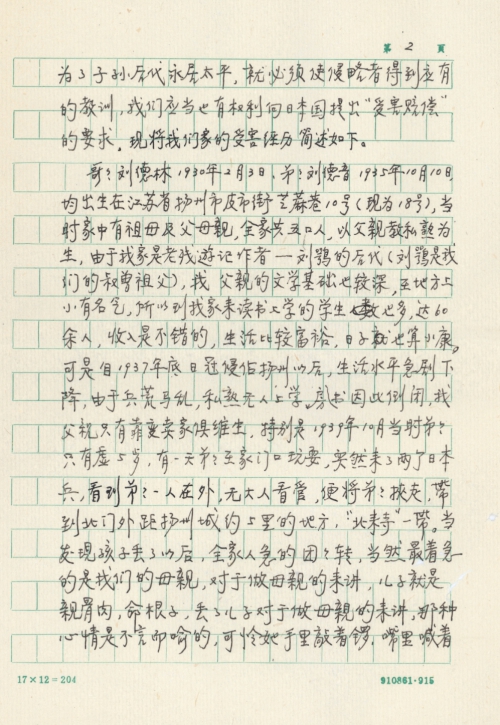 第 2 頁
为了子孙后代永居太平，就必须使侵略者得到应有
的教训，我们应当也有权利向日本国提出“受害赔偿”
的要求。现将我们家的受害经历简述如下。
哥哥刘德林1930年2月3日、弟弟刘德音1935年10月10日
均出生在江苏省扬州市皮市街芝蔴巷10号（现为18号），当
时家中有祖母及父母親，全家共五口人，以父親教私熟为
生，由于我家是老残遊记作者一刘鶚的后代（刘鶚是我
们的叔曾祖父），我父親的文学基础也较深，在地方上
小有名气，所以到我家来读书上学的学生人数也多，达60
余人，收入是不错的，生活比较富裕，日子就也算小康。
可是自1937年底日冦侵佔扬州以后，生活水平急剧下
降，由于兵荒马乱，私熟无人上学，因此倒闭，我
父親只有靠变卖家俱维生，特别是1939年10月当时弟弟
只有虚5岁，有一天弟弟在家门口玩耍，突然来了两个日本
兵，看到弟弟一人在外，无大人看管，便将弟弟挾走，带
到北门外距扬州城约5里的地方，“北来寺”一带。当
发现孩子丢了以后，全家人急的团团转，当然最着急
的是我们的母親，对于做母親的来讲，儿子就是
親骨肉，命根子，丢了儿子对于做母親的来讲，那种
心情是不言而喻的，可怜她手里敲着锣，嘴里喊着
17×12=204
910861·915